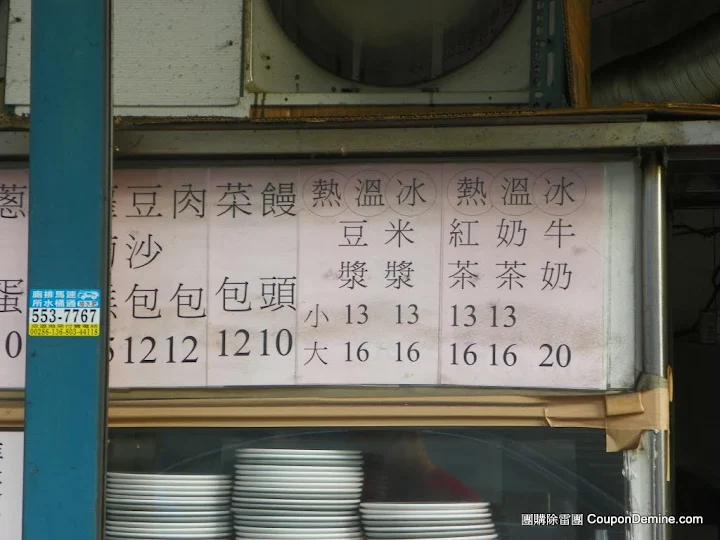 蔥
蛋
0
豆沙包
12
肉包
12
菜包
12
饅頭
10
熱 溫 冰
豆漿 米漿
小 13 13
大 16 16
熱 溫 冰
紅茶 奶茶 牛奶
13 13
16 16 20
廁排馬運
所水桶通
553-7767
00286-136-803-44118
團購除雷團 CouponDemine.com